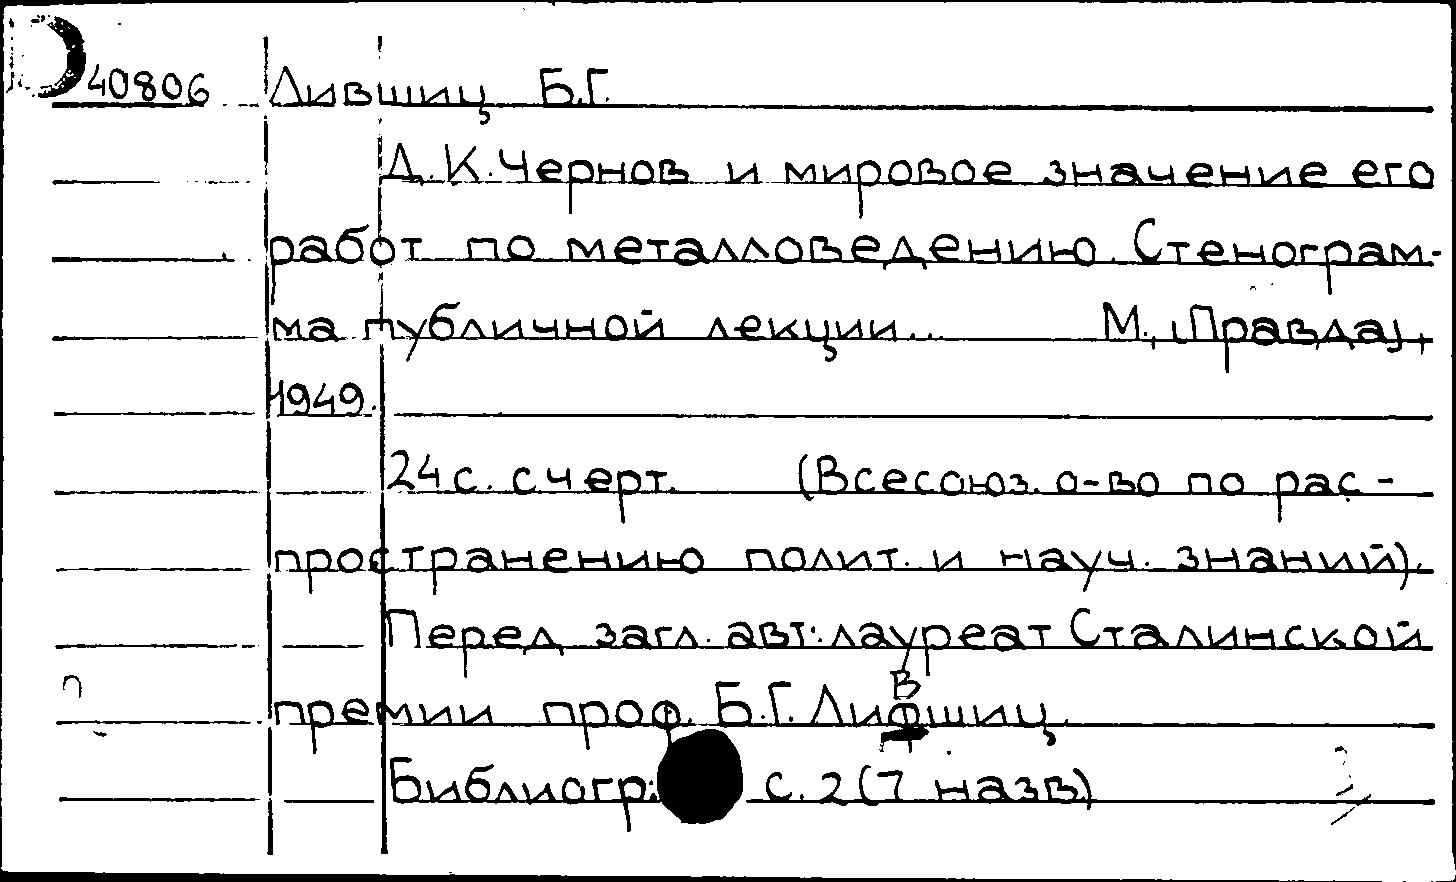 40806 Лившиц Б.Г.
Д.К. Чернов и мировое значение его
работ по металловедению. Стенограм-
ма публичной лекции... М., [Правда],
1949.
24 с. с черт. (Всесоюз. о-во по рас-
пространению полит. и науч. знаний).
Перед загл. авт.: лауреат Сталинской
в
премии проф. Б.Г. Лифшиц.
Библиогр.: с. 2 (7 назв)